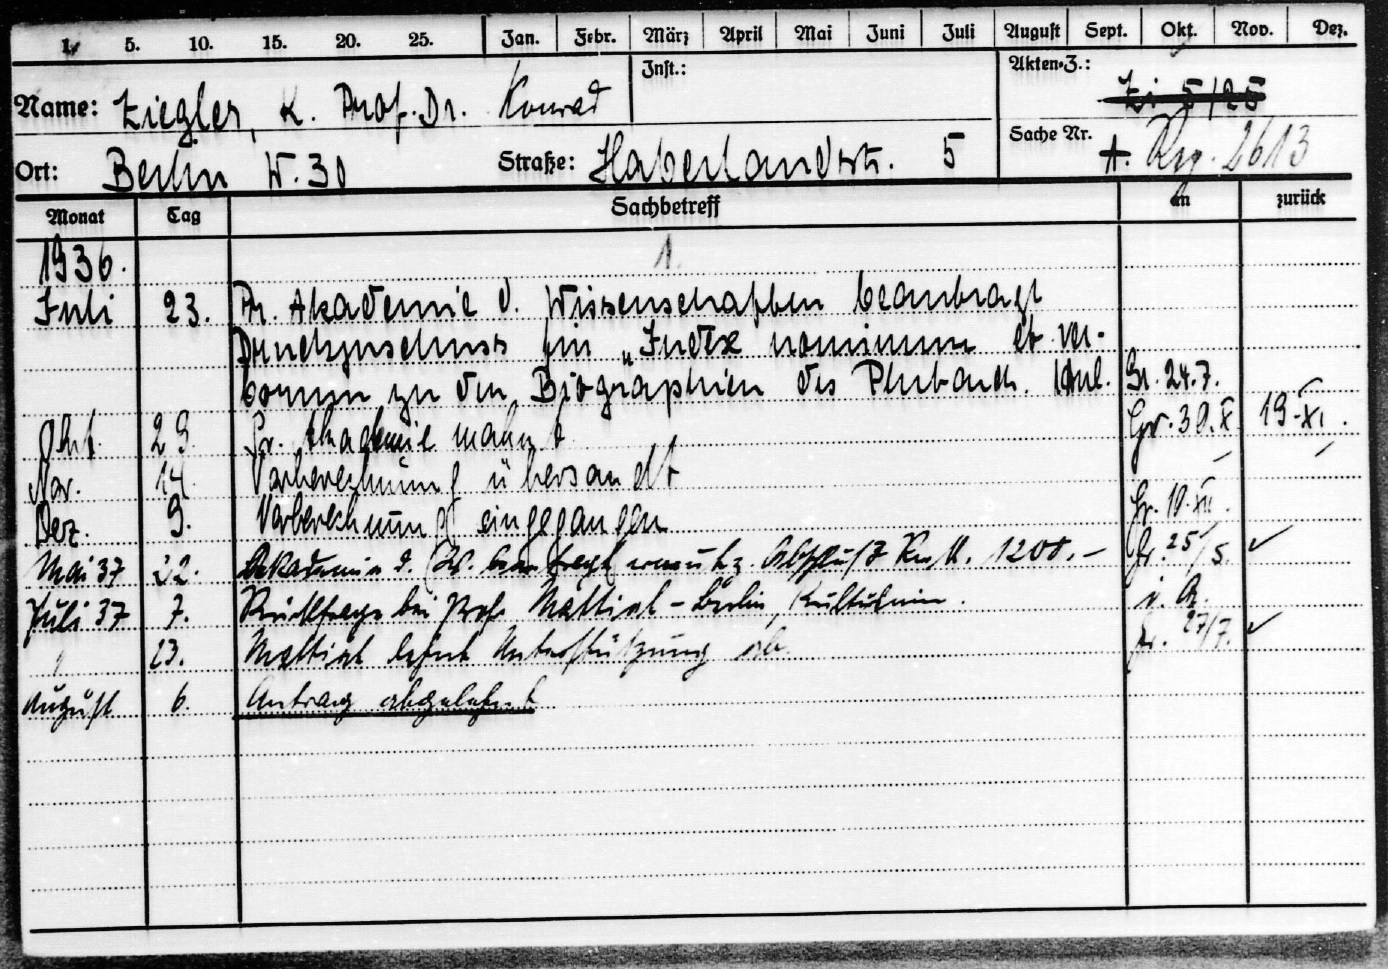 1. 5. 10. 15. 20. 25. Jan. Febr. März April Mai Juni Juli August Sept. Okt. Nov. Dez.
Name: Ziegler, K. Prof. Dr. Konrad Inst.: Akten-Z.: Zi 5/25
Ort: Berlin W. 30 Straße: Haberlandstr. 5 Sache Nr. A. Rzg. 2613
Monat Tag Sachbetreff an zurück
1936. 1.
Juli 23. Pr. Akademie d. Wissenschaften beantragt
Druckzuschuss für "Index nominum et ver-
borum zu den Biographien des Plutarch. Gr. 24.7.
Okt. 29. Pr. Akademie mahnt Gr. 30.X. 19.XI.
Nov. 14. Vorberechnung übersandt
Dez. 9. Vorberechnung eingegangen Gr. 10.XII.
Mai 37 22. Akademie d. W. beantragt Rm. 1200.- Gr. 25/5. ✓
Juli 37 7. Rückfrage bei Prof. Mattiat - Berlin, Kultusmin. i. A.
" 23. Mattiat lehnt Unterstützung ab. Gr. 27/7. ✓
August 6. Antrag abgelehnt